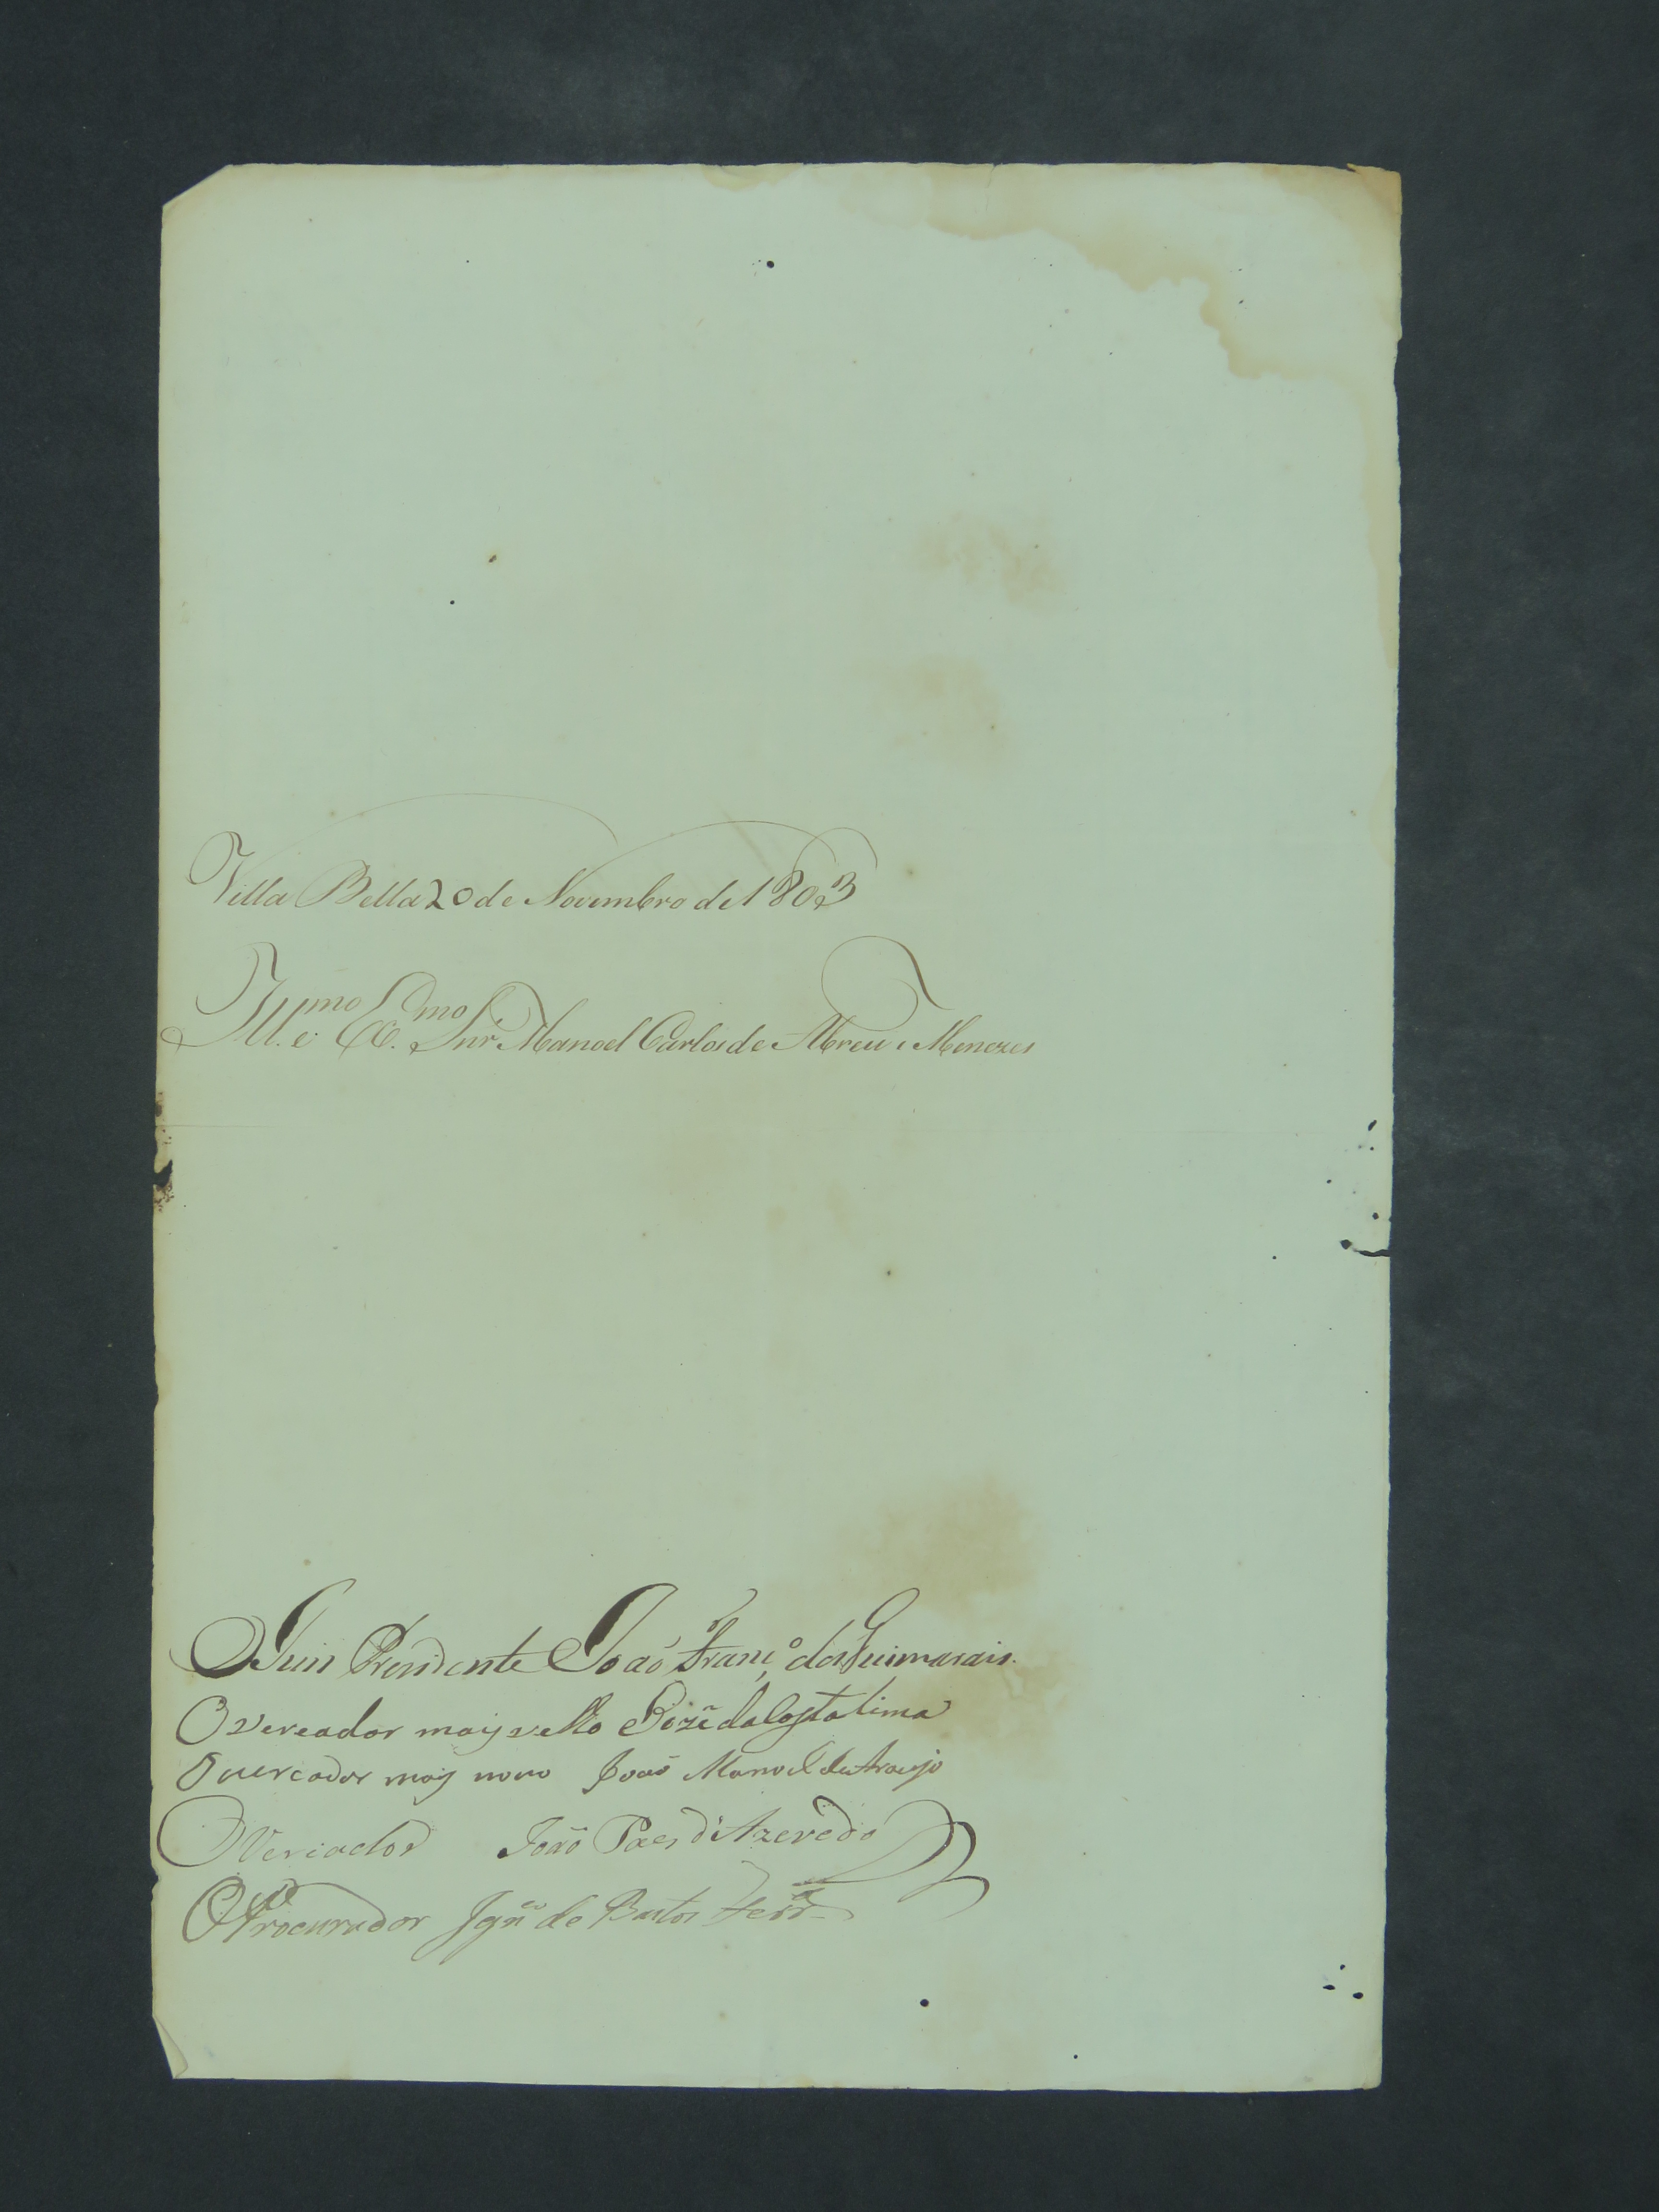 Villa Bella 20 de Novembro de 1803
Ill.mo e Ex.mo Snr. Manoel Carlos de Abreu e Menezes
O Juis Prezidente Joaõ Franc.o dos Guimarais.
O vereador mais velho Jozê da Costa Lima
O vereador mais novo Joaõ Manoel de Araujo
O Veriador João Paes d'Azevedo
O Procurador Ign.co de Bastos Ferr.a